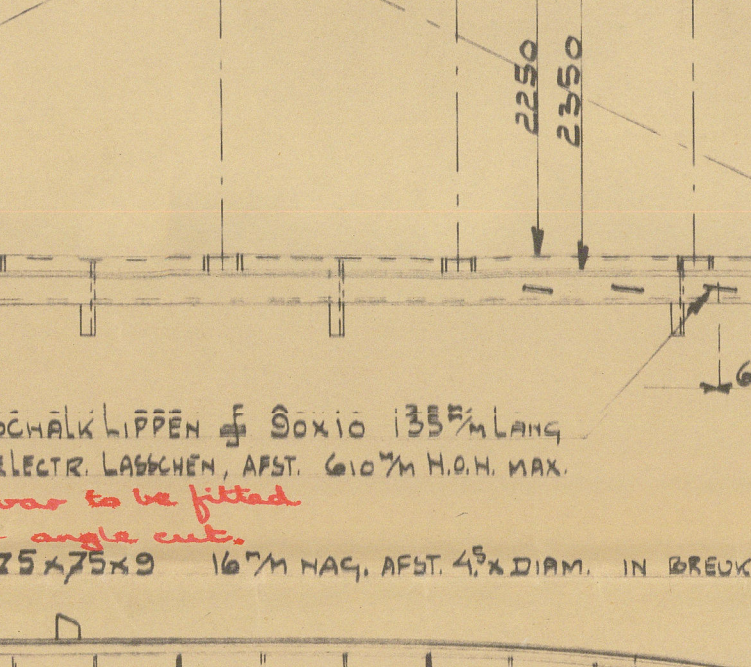 2250
2350
6
SCHALKLIPPEN 90x10 135 m/m LANG
ELECTR. LASSCHEN, AFST. 610 m/m H.O.H. MAX.
to be fitted
angle cut.
75x75x9 16 m/m NAG. AFST. 4.5x DIAM. IN BREUK